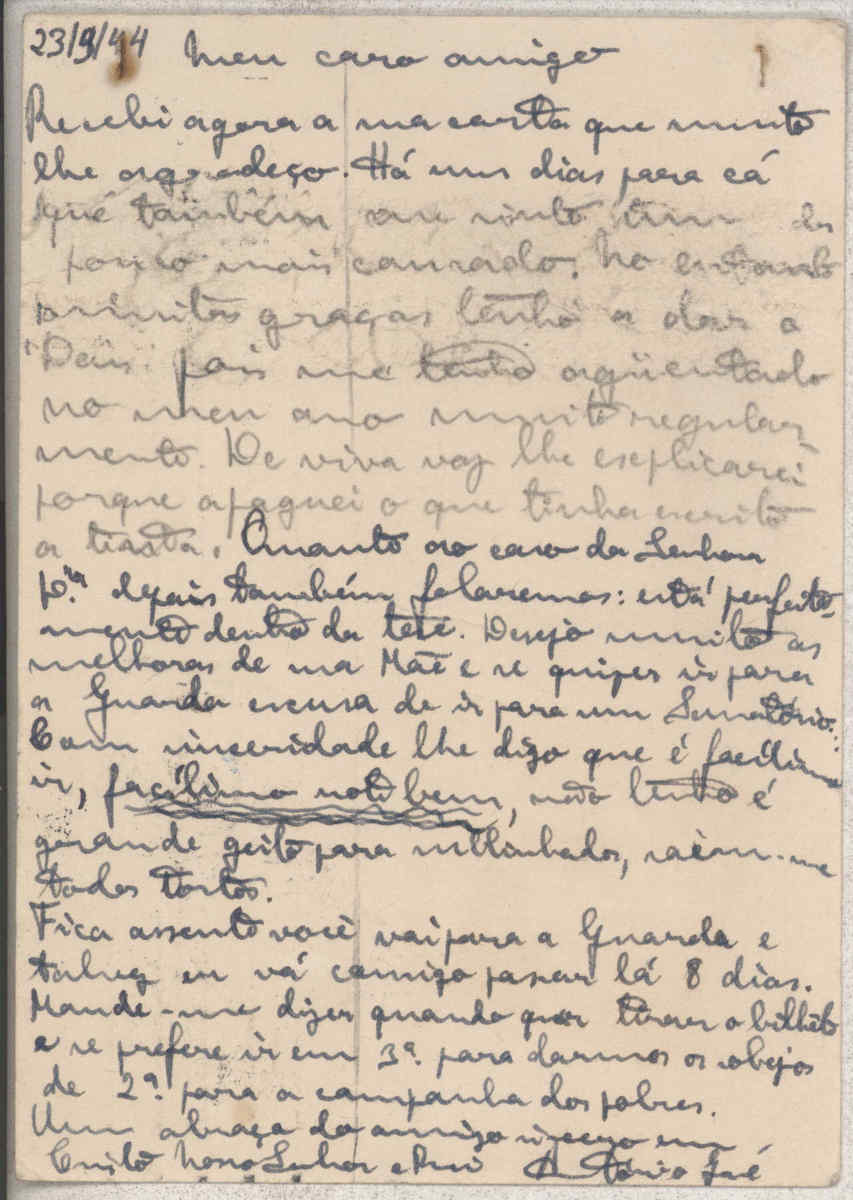 23/9/44 Meu caro amigo
Recebi agora a sua carta que muito
lhe agradeço. Há uns dias para cá
que também me sinto um
pouco mais cansado. No entanto
muitas graças tenho a dar a
Deus pois me tenho agüentado
no meu ano muito regular
mente. De viva voz lhe explicarei
porque apaguei o que tinha escrito
a tinta. Quanto ao caso da Senhora
depois também falaremos: está perfeita-
mente dentro da tese. Desejo muito as
melhoras de sua Mãe e se quiser ir para
a Guarda escusa de ir para um Sanatório.
Com sinceridade lhe digo que é facílimo
ir, facílimo note bem, não tenho é
grande geito para sublinhados, saem-me
todos tortos.
Fica assente você vai para a Guarda e
talvez eu vá comigo passar lá 8 dias.
Mande-me dizer quando quer tirar o bilhete
e se prefere ir em 3ª. para darmos os
de 2ª. para a campanha dos pobres.
Um abraço do amigo sincero em
Cristo Nosso Senhor e Rei António José